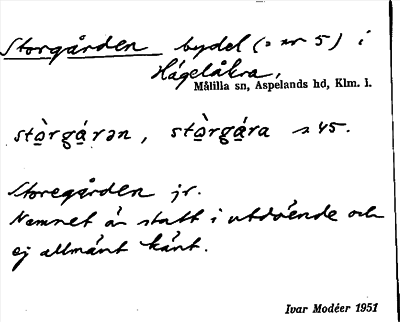 Storgården bydel (= nr 5) i
Hägelåkra,
Målilla sn, Aspelands hd, Klm. l.
stòrgárən, stòrgára ɔ 45.
Storegården jr.
Namnet är statt i utdöende och
ej allmänt känt.
Ivar Modéer 1951